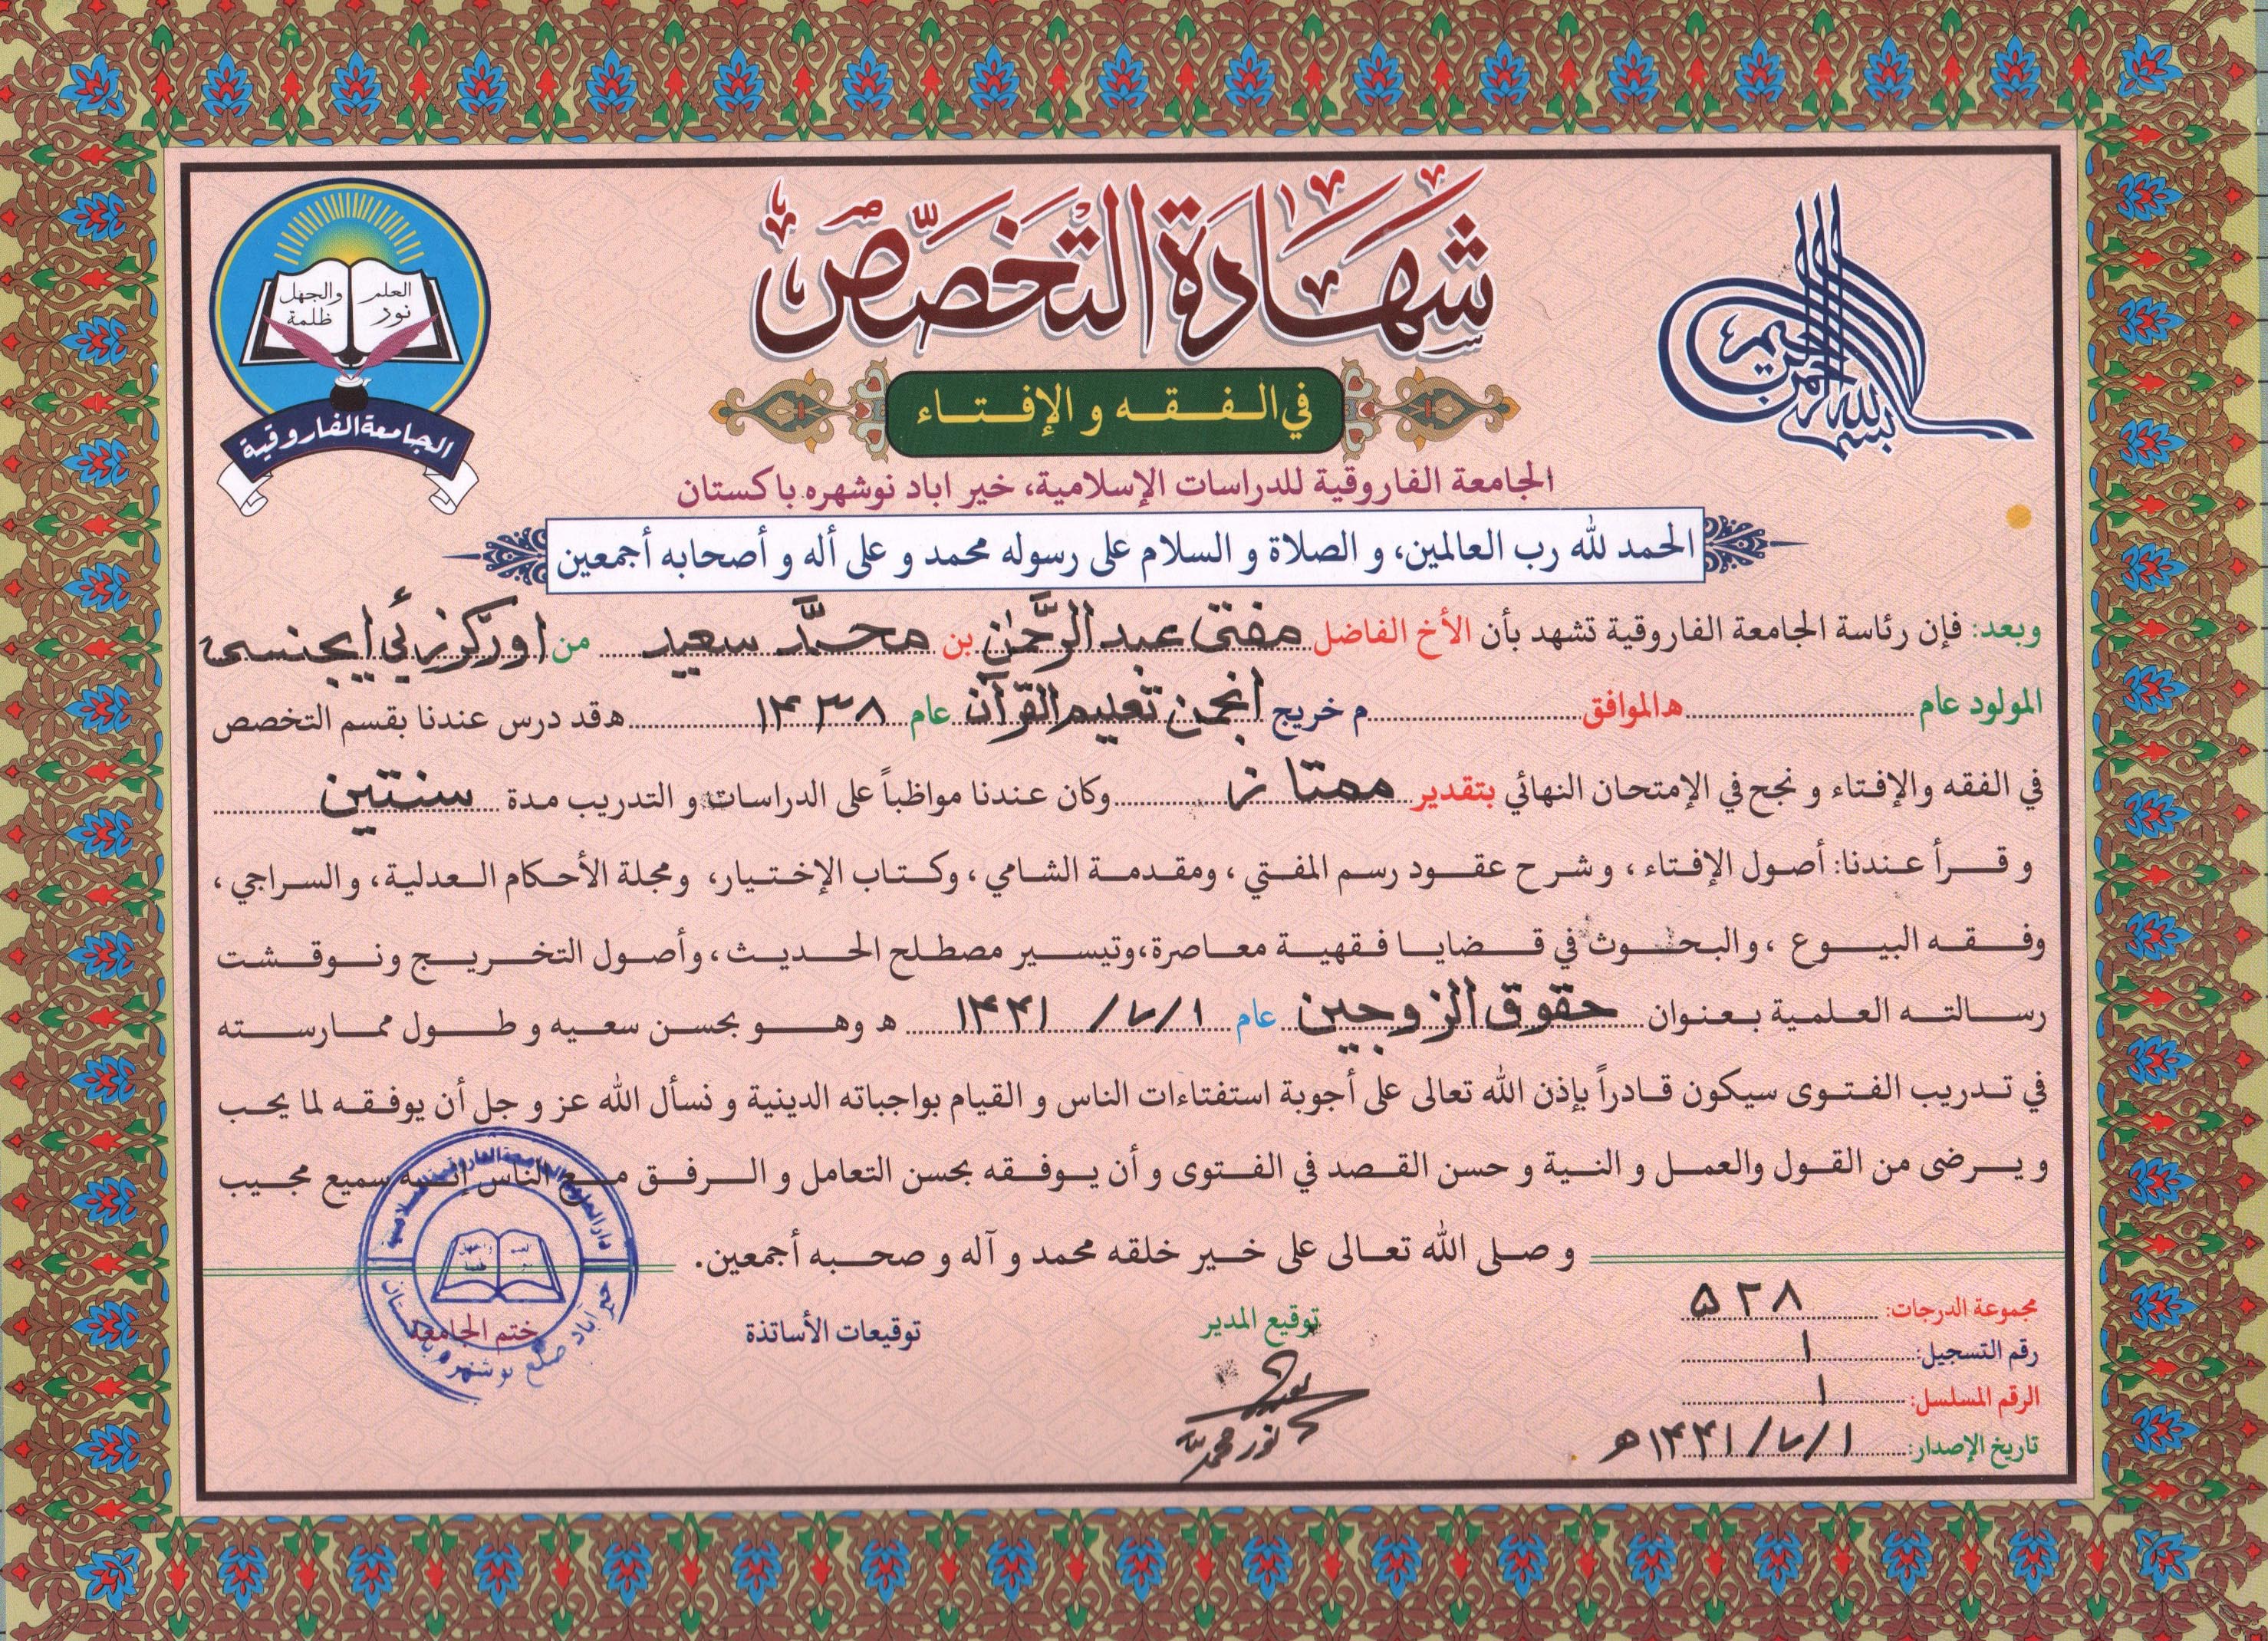 بسم الله الرحمن الرحيم
شهادة التخصص
العلم نور والجهل ظلمة
الجامعة الفاروقية
في الفقه و الإفتاء
الجامعة الفاروقية للدراسات الإسلامية، خير اباد نوشهره باكستان
الحمد لله رب العالمين، و الصلاة و السلام على رسوله محمد و على أله و أصحابه أجمعين
وبعد: فإن رئاسة الجامعة الفاروقية تشهد بأن الأخ الفاضل مفتی عبد الرَّحمٰن بن محمَّد سعید من اورکزئی ایجنسی
المولود عام هـ الموافق م خريج انجمن تعلیم القرآن عام ۱۴۳۸ هـ قد درس عندنا بقسم التخصص
في الفقه والإفتاء و نجح في الإمتحان النهائي بتقدير ممتاز وكان عندنا مواظباً على الدراسات و التدريب مدة سنتین
و قرأ عندنا: أصول الإفتاء ، وشرح عقود رسم المفتي ، ومقدمة الشامي ، وكتاب الإختيار، ومجلة الأحكام العدلية، والسراجي ،
وفقه البيوع ، والبحوث في قضايا فقهية معاصرة،وتيسير مصطلح الحديث، وأصول التخريج ونوقشت
رسالته العلمية بعنوان حقوق الزوجین عام ۱/۷/۱۴۴۱ هـ وهو بحسن سعيه و طول ممارسته
في تدريب الفتوى سيكون قادراً بإذن الله تعالى على أجوبة استفتاءات الناس و القيام بواجباته الدينية و نسأل الله عز و جل أن يوفقه لما يحب
و يرضى من القول والعمل و النية و حسن القصد في الفتوى و أن يوفقه بحسن التعامل و الرفق مع الناس إنه سميع مجيب
و صلى الله تعالى على خير خلقه محمد و آله و صحبه أجمعين.
مجموعة الدرجات: ۵۲۸
رقم التسجيل: ۱
الرقم المسلسل: ۱
تاريخ الإصدار: ۱/۷/۱۴۴۱ھ
توقيع المدير
نور محمد
توقيعات الأساتذة
ختم الجامعة
خیر آباد ضلع نوشهره پاکستان